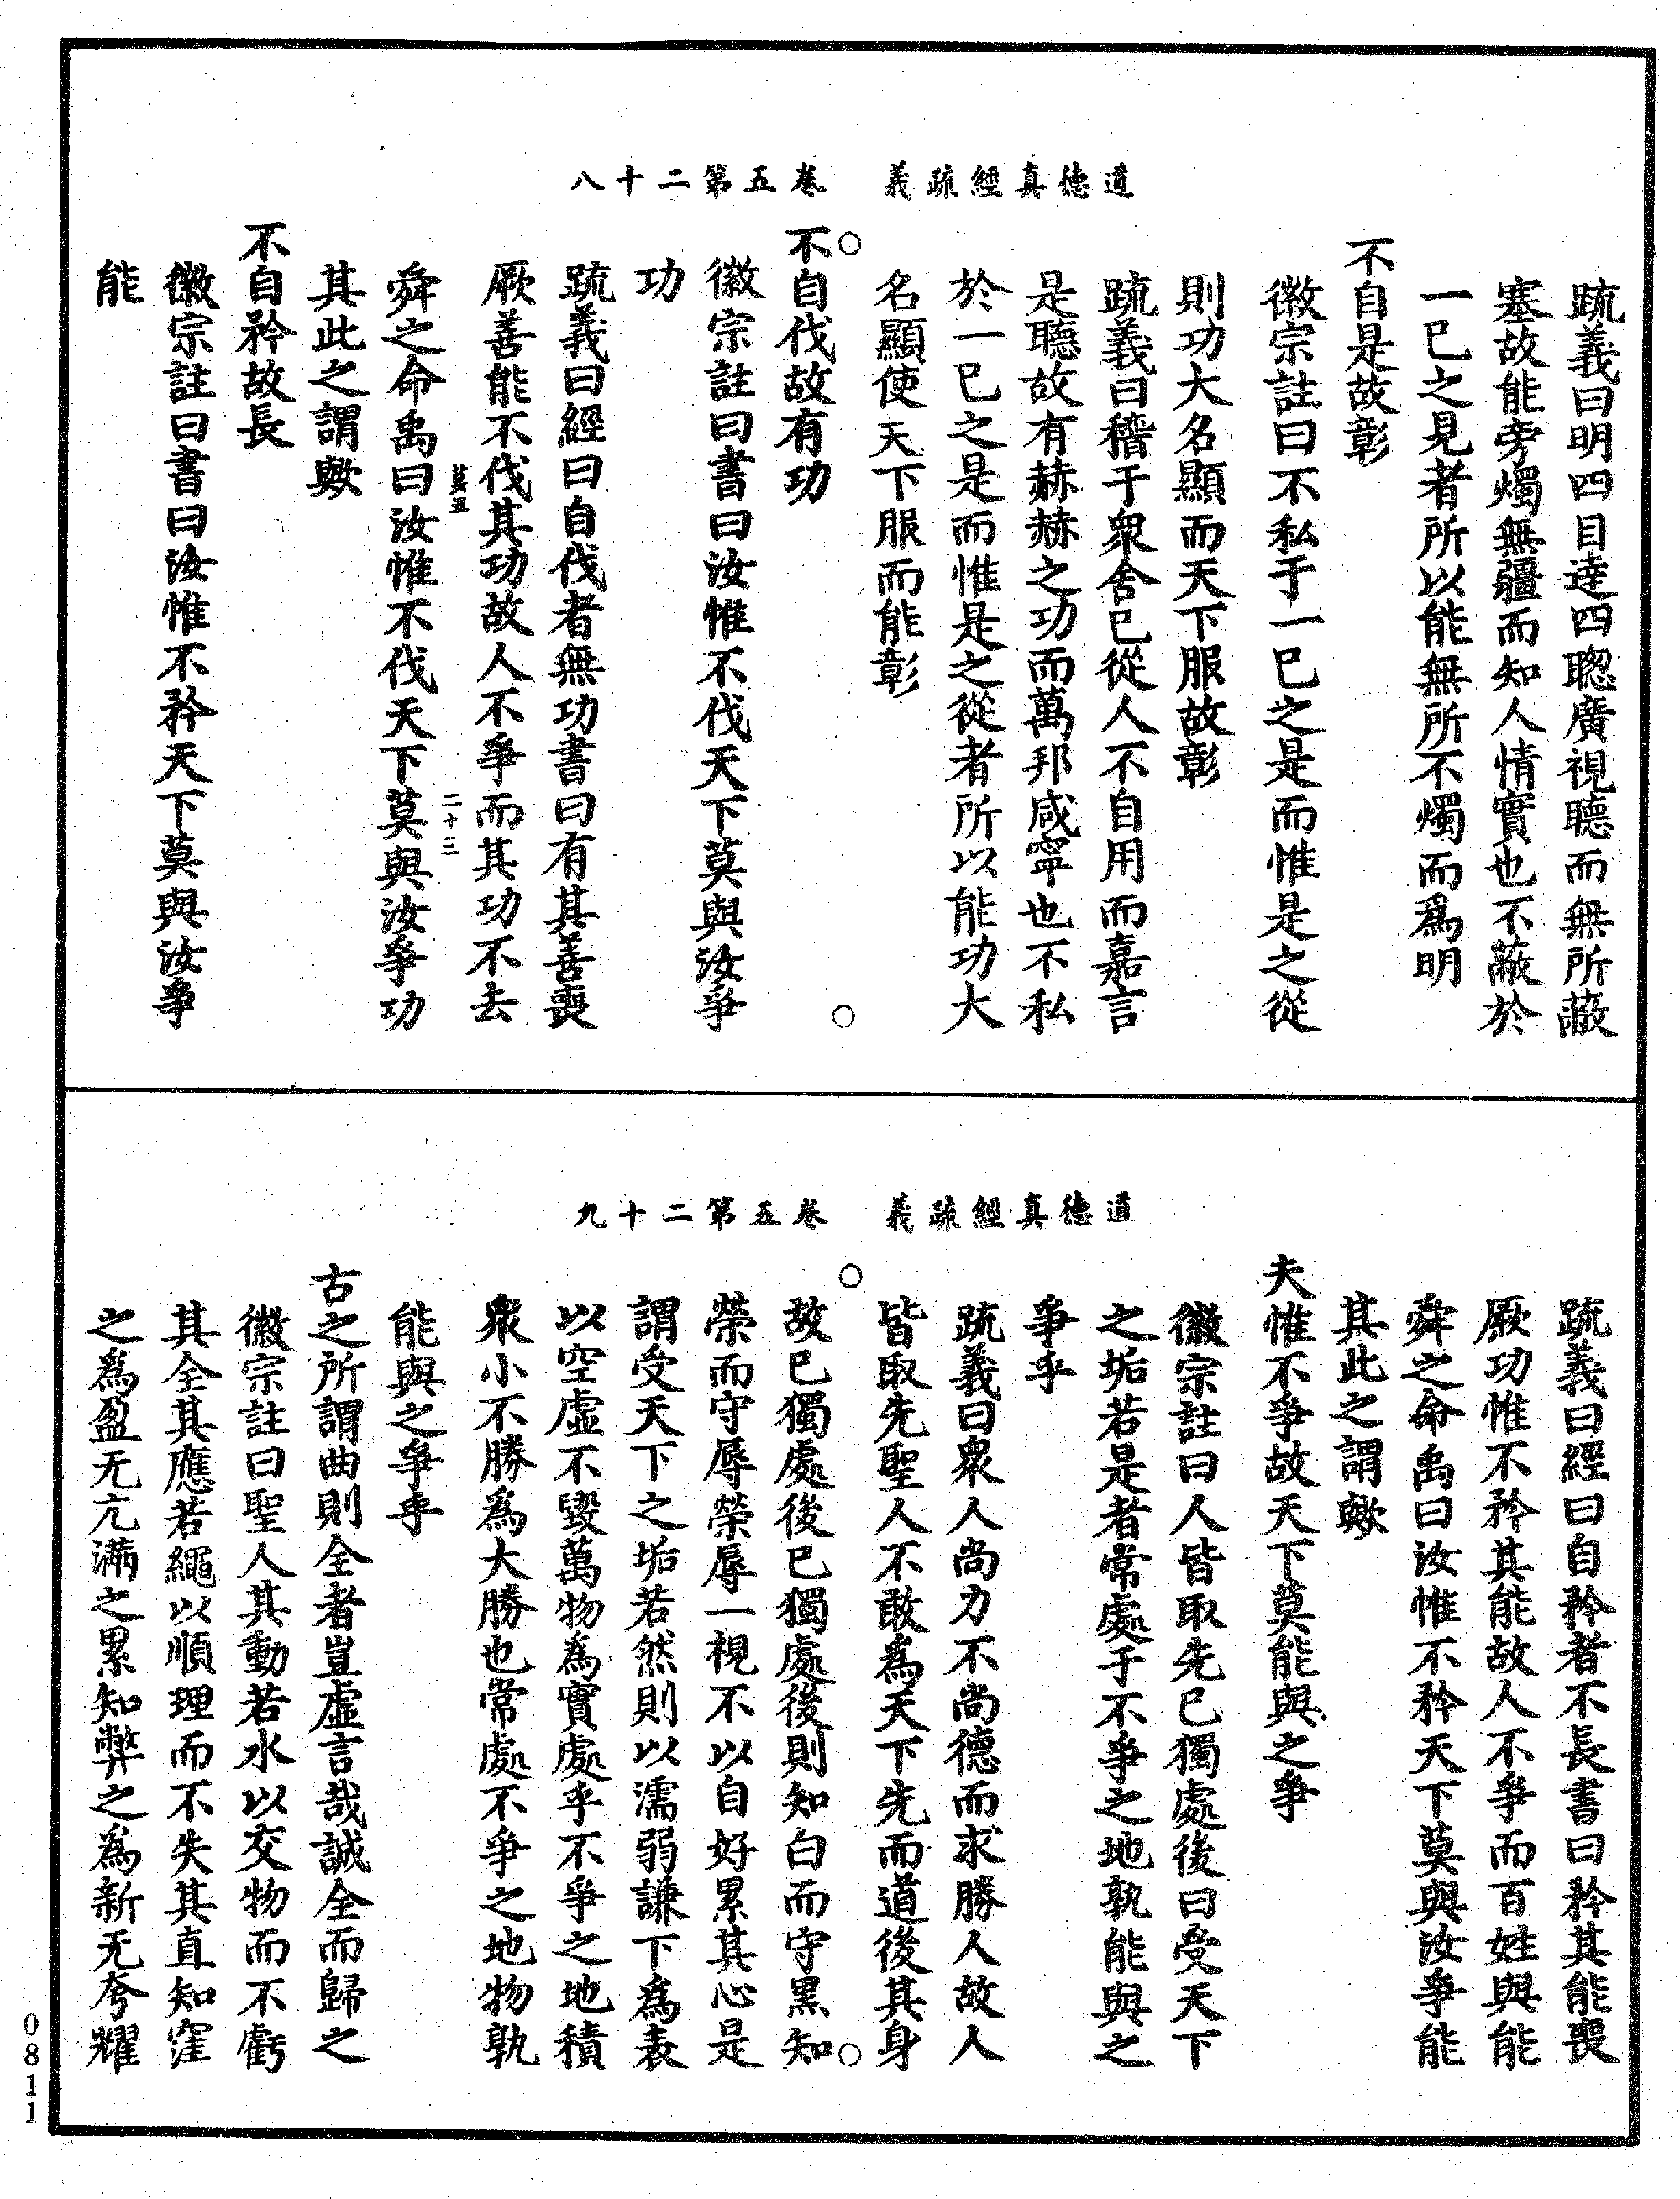 道德真經疏義 卷五第二十八
疏義曰明四目達四聰廣視聽而無所蔽
塞故能旁燭無疆而知人情實也不蔽於
一已之見者所以能無所不燭而爲明
不自是故彰
徽宗註曰不私于一已之是而惟是之從
則功大名顯而天下服故彰
疏義曰稽于衆舍已從人不自用而嘉言
是聽故有赫赫之功而萬邦咸寧也不私
於一已之是而惟是之從者所以能功大
名顯使天下服而能彰
不自伐故有功
徽宗註曰書曰汝惟不伐天下莫與汝爭
功
疏義曰經曰自伐者無功書曰有其善喪
厥善能不伐其功故人不爭而其功不去
莫五 二十三
舜之命禹曰汝惟不伐天下莫與汝爭功
其此之謂歟
不自矜故長
徽宗註曰書曰汝惟不矜天下莫與汝爭
能
道德真經疏義 卷五第二十九
疏義曰經曰自矜者不長書曰矜其能喪
厥功惟不矜其能故人不爭而百姓與能
舜之命禹曰汝惟不矜天下莫與汝爭能
其此之謂歟
夫惟不爭故天下莫能與之爭
徽宗註曰人皆取先已獨處後曰受天下
之垢若是者常處于不爭之地孰能與之
爭乎
疏義曰衆人尚力不尚德而求勝人故人
皆取先聖人不敢爲天下先而道後其身
故已獨處後已獨處後則知白而守黑知
榮而守辱榮辱一視不以自好累其心是
謂受天下之垢若然則以濡弱謙下爲表
以空虛不毀萬物為實處乎不爭之地積
衆小不勝為大勝也常處不爭之地物孰
能與之爭乎
古之所謂曲則全者豈虛言哉誠全而歸之
徽宗註曰聖人其動若水以交物而不虧
其全其應若繩以順理而不失其直知窪
之爲盈无亢滿之累知弊之為新无夸耀
0811